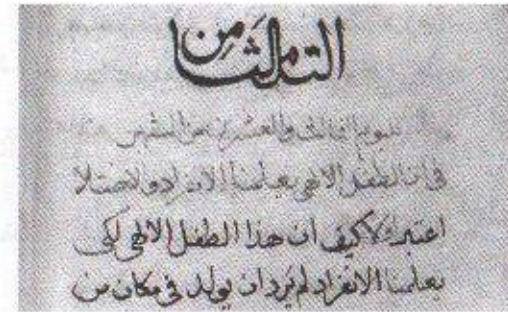 التامل الثامن
لليوم الثالث والعشرين من الشهر
في ان الطفل الالهي يعلمنا الانفراد والاختلا
اعتبر اولا كيف ان هذا الطفل الالهي لكي
يعلمنا الانفراد لم يرد ان يولد في مكان من